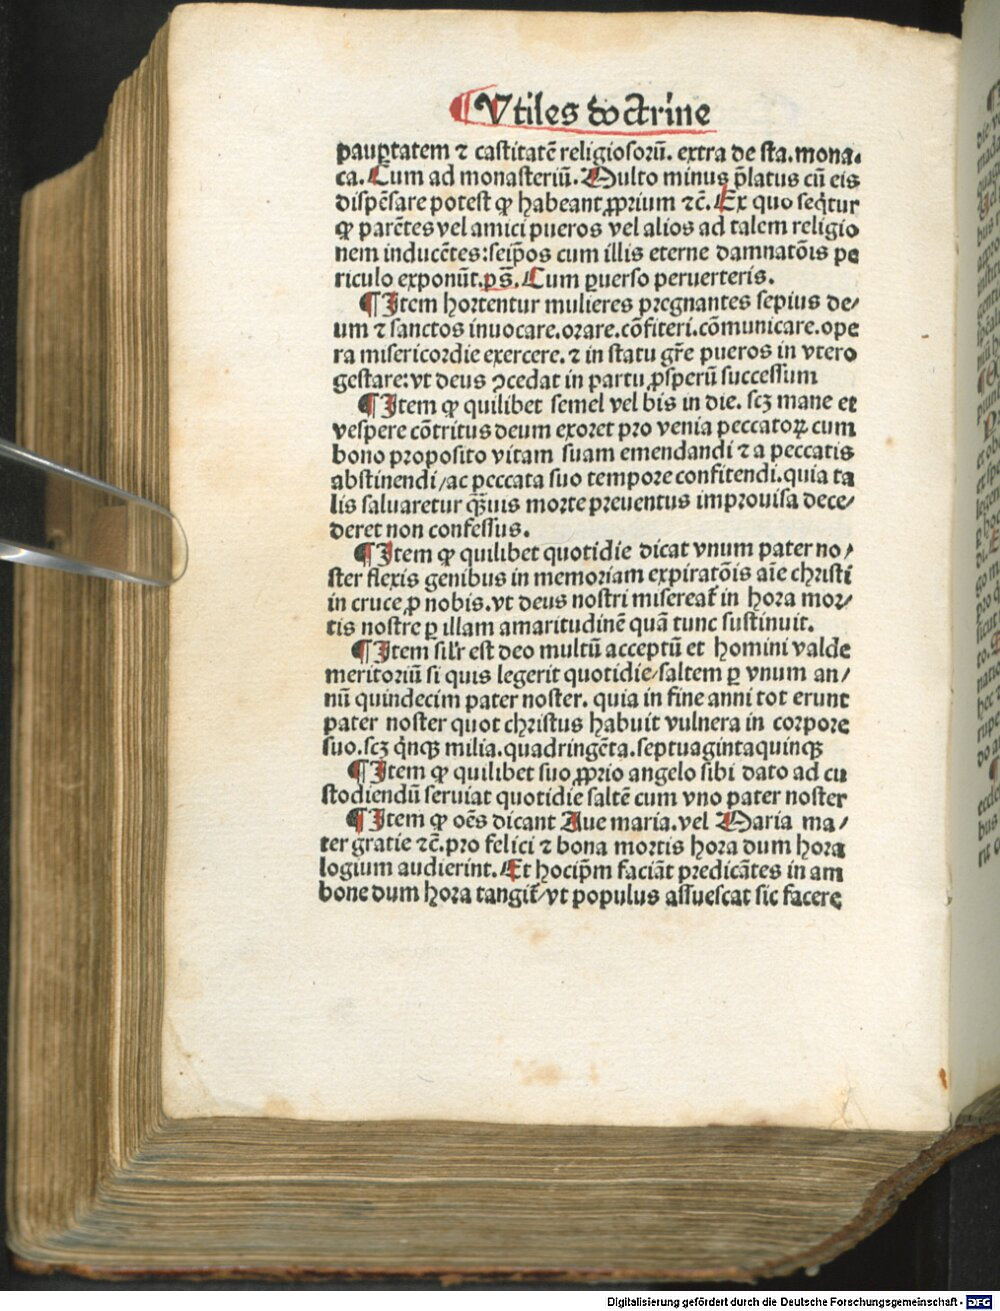 ¶ Vtiles doctrine
paup̱tatem ⁊ caſtitatē religioſorū. extra de ſta. mona⸗
ca. Cum ad monaſteriū. Multo minus p̄latus cū eis
diſpēſare poteſt ꝙ habeant ꝓprium ⁊c̄. Ex quo ſeq̇tur
ꝙ parētes vel amici pueros vel alios ad talem religio
nem inducētes: ſeip̄os cum illis eterne damnatōis pe
riculo exponūt. pš. Cum ꝑuerſo peruerteris.
¶ Item hortentur mulieres pregnantes ſepius de/
um ⁊ ſanctos inuocare. orare. cōfiteri. cōmunicare. ope
ra miſericordie exercere. ⁊ in ſtatu gr̄e pueros in vtero
geſtare: vt deus ꝯcedat in partu ꝓſperū ſucceſſum
¶ Item ꝙ quilibet ſemel vel bis in die. ſcꝫ mane et
veſpere cōtritus deum exoret pro venia peccatoꝝ cum
bono propoſito vitam ſuam emendandi ⁊ a peccatis
abſtinendi / ac peccata ſuo tempore confitendi. quia ta
lis ſaluaretur qͣꝫuis morte preuentus improuiſa dece/
deret non confeſſus.
¶ Item ꝙ quilibet quotidie dicat vnum pater no/
ſter flexis genibus in memoriam expiratōis aīe chriſti
in cruce ꝓ nobis. vt deus noſtri miſereat᷑ in hora mor/
tis noſtre ꝑ illam amaritudinē quā tunc ſuſtinuit.
¶ Item ſil'r eſt deo multū acceptū et homini valde
meritoriū ſi quis legerit quotidie / ſaltem ꝑ vnum an/
nū quindecim pater noſter. quia in fine anni tot erunt
pater noſter quot chriſtus habuit vulnera in corpore
ſuo. ſcꝫ q̇nqꝫ milia. quadringēta. ſeptuagintaquinqꝫ
¶ Item ꝙ quilibet ſuo ꝓprio angelo ſibi dato ad cu
ſtodiendū ſeruiat quotidie ſaltē cum vno pater noſter
¶ Item ꝙ oēs dicant Aue maria. vel Maria ma/
ter gratie ⁊c̄. pro felici ⁊ bona mortis hora dum hora
logium audierint. Et hocip̄m faciāt predicātes in am
bone dum hora tangit᷑ / vt populus aſſueſcat ſic facere
Digitalisierung gefördert durch die Deutsche Forschungsgemeinschaft - DFG